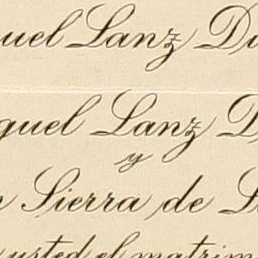 uel Lanz Du
guel Lanz D
y
e Sierra de L
usted el matrim